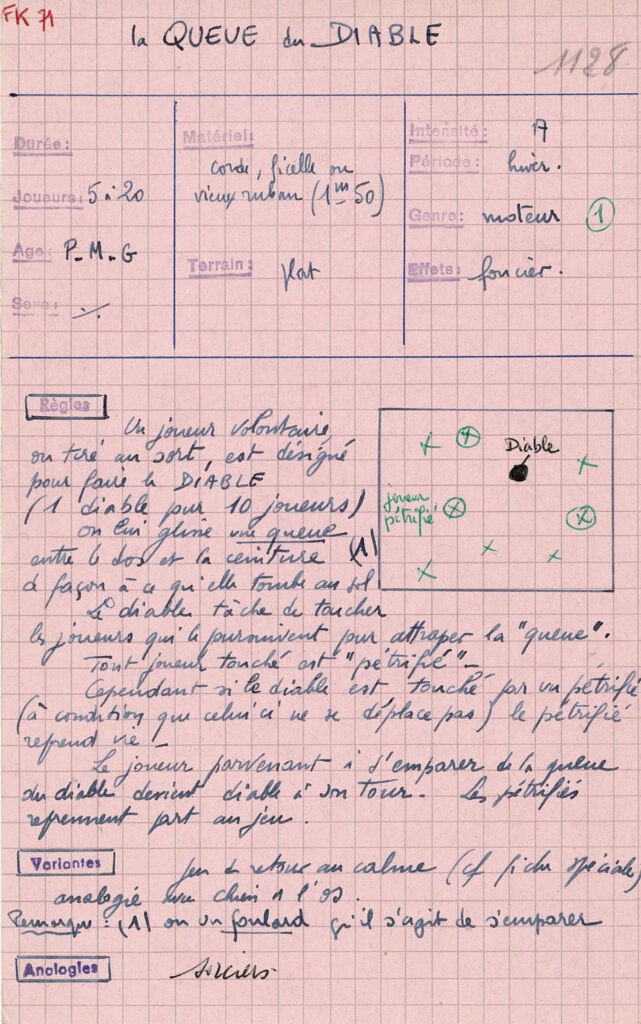 FK 71
la QUEUE du DIABLE
1128
Durée:
Joueurs: 5 à 20
Age: P. M. G
Sexe: ·/.
Matériel:
corde, ficelle ou
vieux ruban (1m50)
Terrain: plat
Intensité: 
Période: hiver.
Genre: moteur 1
Effets: foncier.
Règles
Un joueur volontaire,
ou tiré au sort, est désigné
pour faire le DIABLE
(1 diable pour 10 joueurs)
on lui glisse une queue
entre le dos et la ceinture (1)
de façon à ce qu'elle tombe au sol.
Le diable tâche de toucher
les joueurs qui le poursuivent pour attraper la "queue".
Tout joueur touché est "pétrifié" -
Cependant si le diable est touché par un pétrifié
(à condition que celui ci ne se déplace pas) le pétrifié
reprend vie -
Le joueur parvenant à s'emparer de la queue
du diable devient diable à son tour. Les pétrifiés
reprennent part au jeu.
Diable
joueur
pétrifié
Variantes
jeu de retour au calme (cf fiche spéciale)
analogie avec chien à l'os.
Remarque: (1) ou un foulard qu'il s'agit de s'emparer
Analogies
sorciers